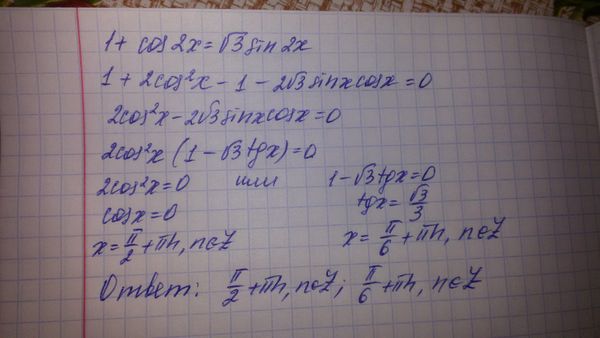 1 + cos 2x = √3 sin 2x
1 + 2cos²x - 1 - 2√3 sinx cosx = 0
2cos²x - 2√3 sinx cosx = 0
2cos²x (1 - √3 tgx) = 0
2cos²x = 0 или 1 - √3 tgx = 0
cosx = 0 tgx = √3/3
x = π/2 + πn, n∈Z x = π/6 + πn, n∈Z
Ответ: π/2 + πn, n∈Z; π/6 + πn, n∈Z